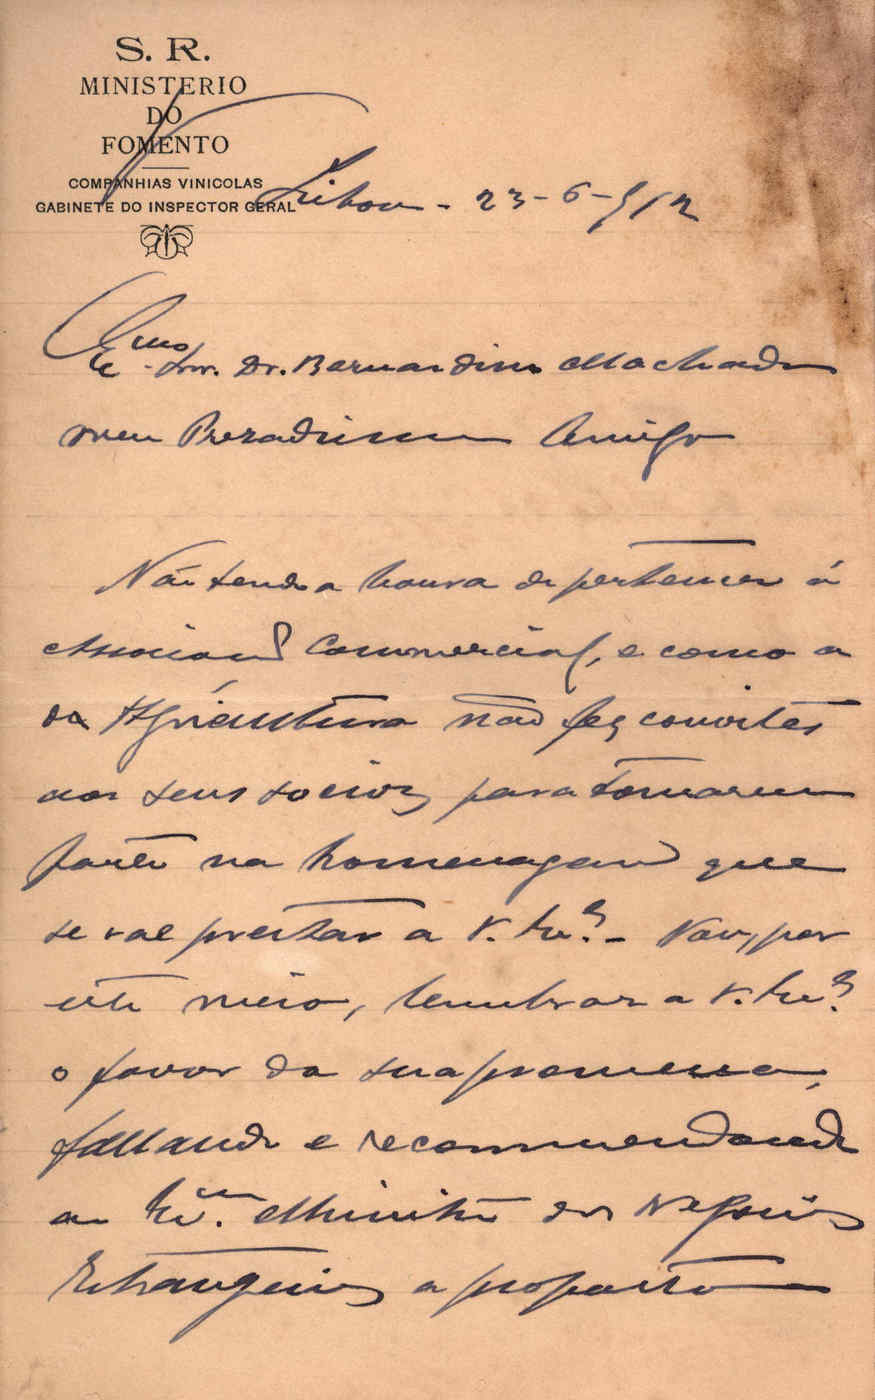 S. R.
MINISTERIO
DO
FOMENTO
COMPANHIAS VINICOLAS
GABINETE DO INSPECTOR GERAL
Lisboa - 23-6-912
Exmo Snr. Dr. Bernardino Machado
Meu Prezadissimo Amigo
Não tendo a honra de pertencer á
Associação Commercial, e como a
da Agricultura não fez convites
aos seus socios para tomarem
parte na homenagem que
se vae prestar a V. Exª. - Vou, por
este meio, lembrar a V. Exª
o favor da sua promessa,
fallando e recommendando
ao Exmº. Ministro dos Negocios
Estrangeiros a proposito